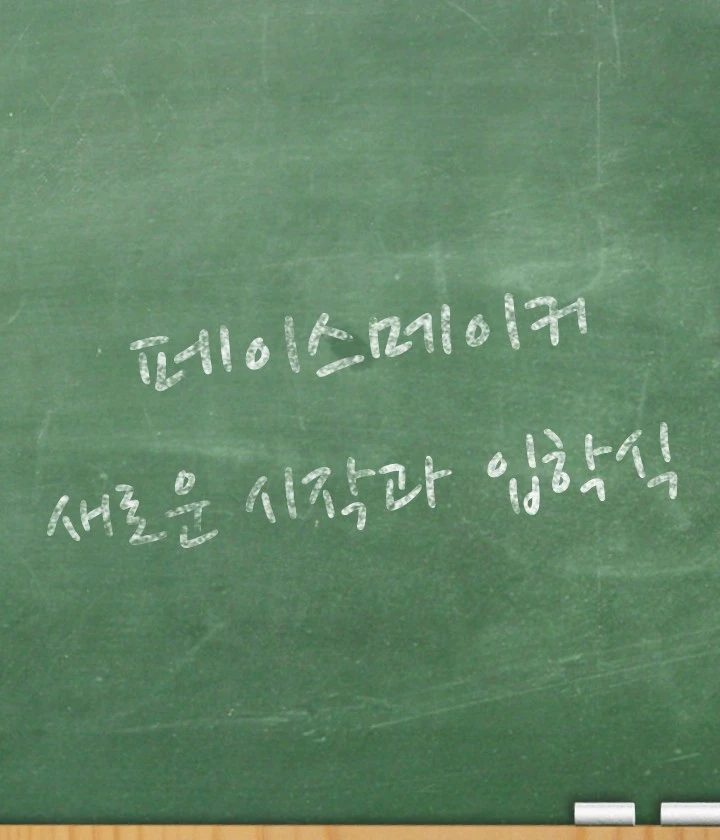 페이스메이커
새로운 시작과 입학식